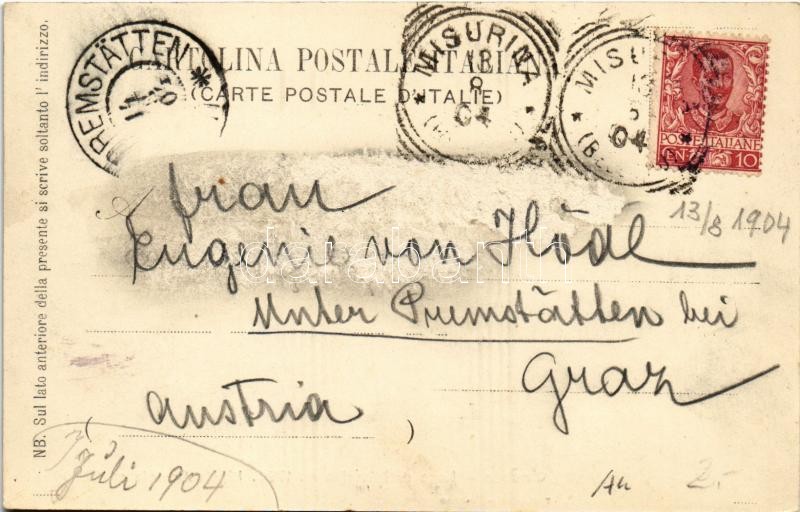 CARTOLINA POSTALE ITALIANA
(CARTE POSTALE D'ITALIE)
PREMSTÄTTEN
MISURINA
13
8
04
MISU
13
04
POSTE ITALIANE
CEN 10
13/8 1904
Frau
Eugenie von Hödl
Unter Premstätten bei
Graz
Austria
( )
Juli 1904
2.-
NB. Sul lato anteriore della presente si scrive soltanto l'indirizzo.
darabanth